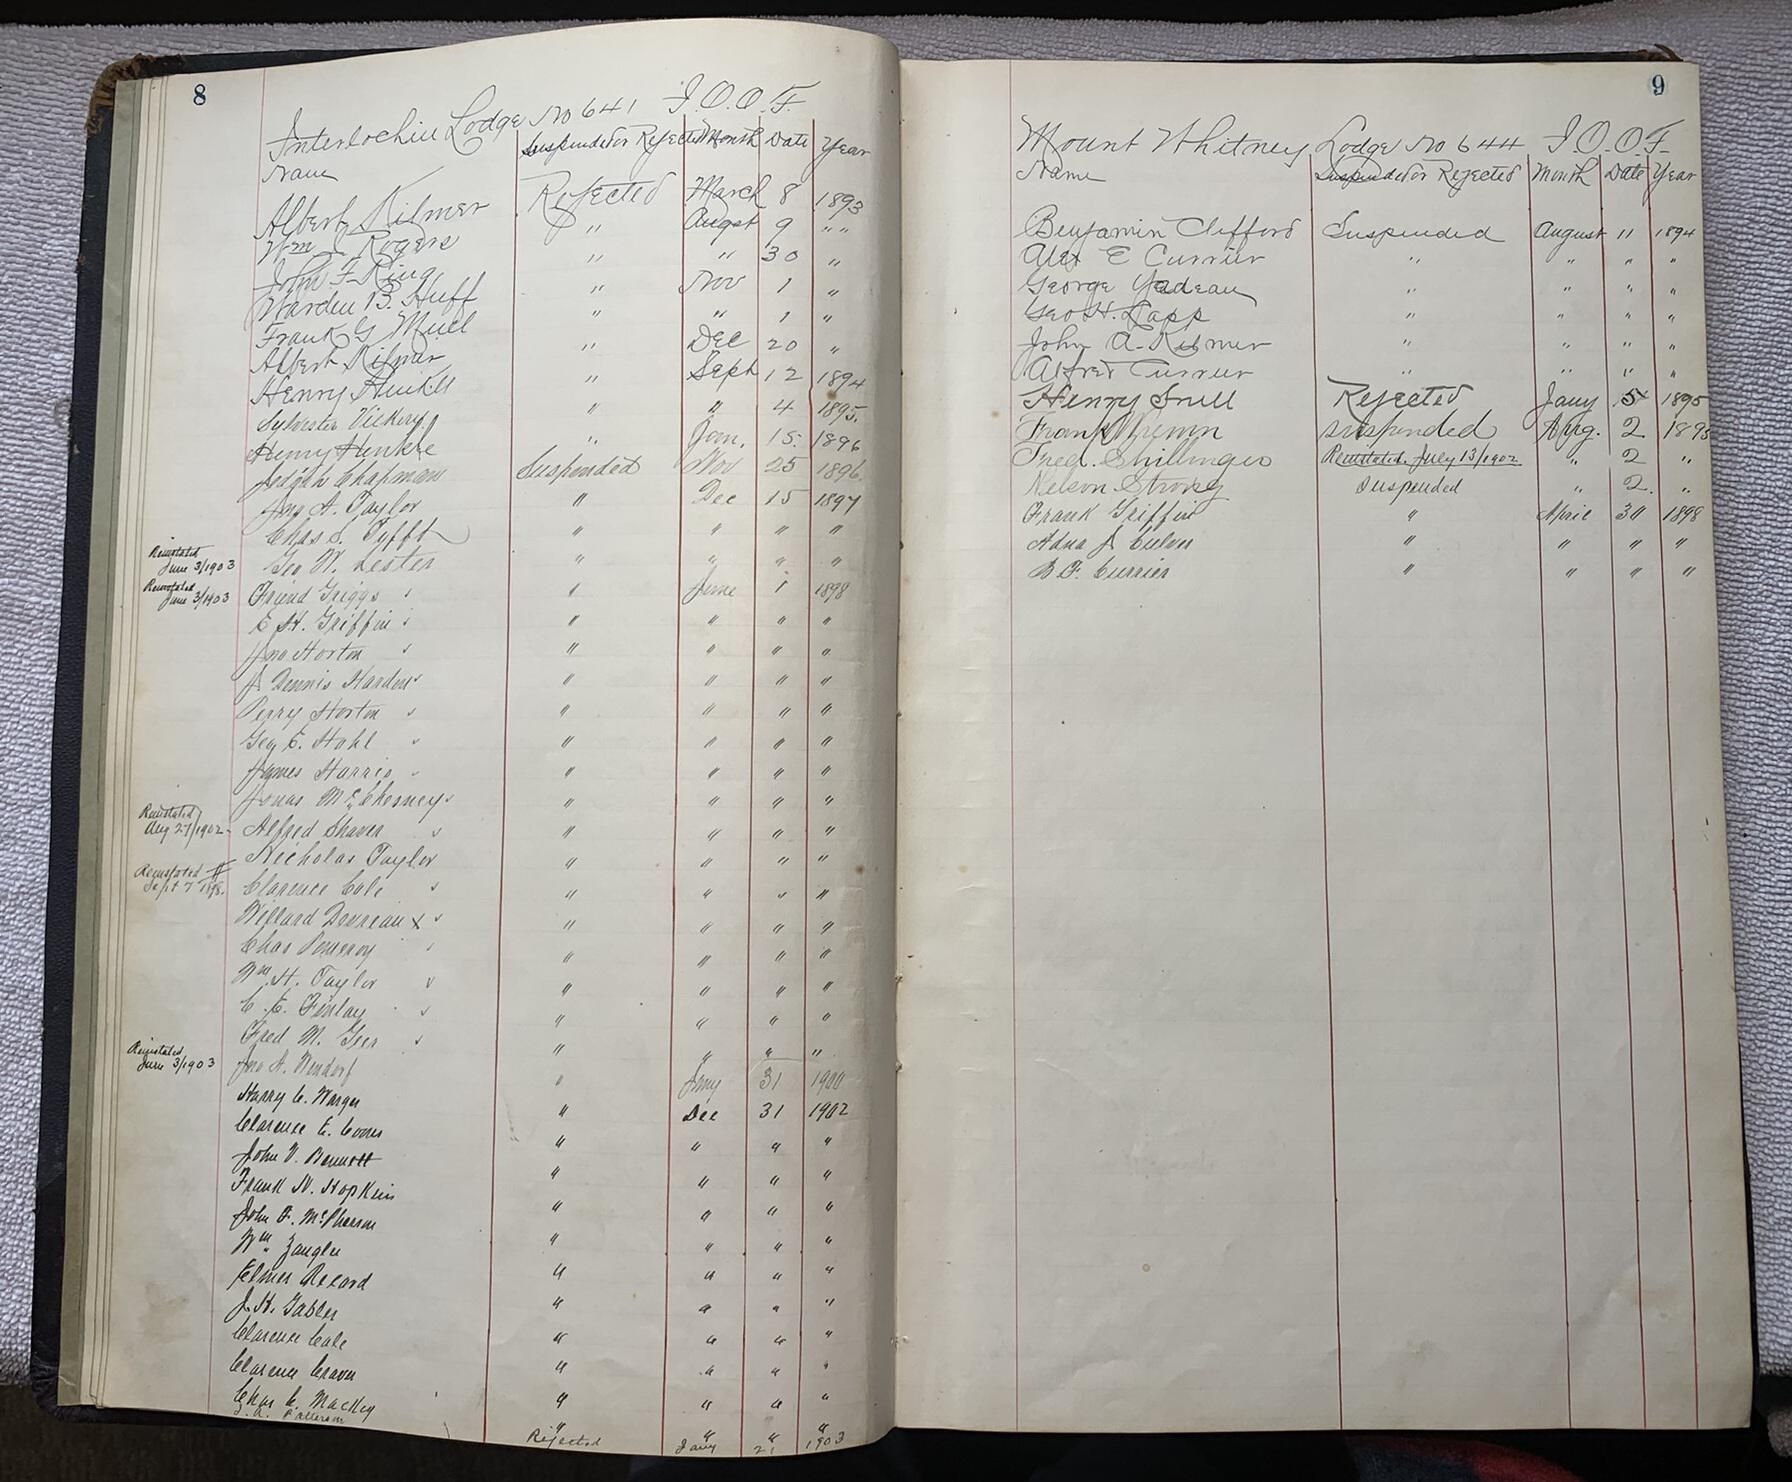 8
Interlochin Lodge No 641 I.O.O.F.
Name Suspended or Rejected Month Date Year
Albert Kilmer Rejected March 8 1893
Wm C Rogers " Augst 9 " "
John F King " " 30 "
Warden B. Huff " Nov 1 "
Frank G Muel " " 1 "
Albert Kilmar " Dec 20 "
Henry Hinkle " Sept 12 1894
Sylvester Vickery " " 4 1895.
Henry Henkle " Jan. 15. 1896
Judson Chapman Suspended Nov 25 1896.
Jno A. Taylor " Dec 15 1897
Chas S. Tyfft " " " "
Reinstated June 3/1903 Geo W. Lester " " " "
Reinstated June 3/1903 Friend Griggs " June 1 1898
E H. Griffin " " " "
Jno Horton " " " "
J Dennis Harden " " " "
Perry Horton " " " "
Geo E. Hahl " " " "
James Harris " " " "
Jonas McChesney " " " "
Reinstated Aug 27/1902 Alfred Shaver " " " "
Nicholas Taylor " " " "
Reinstated Sept 7 1898. Clarence Cole " " " "
Willard Devreaux " " " "
Chas Pomeroy " " " "
Wm. H. Taylor " " " "
C. E. Finlay " " " "
Fred M. Geer " " " "
Reinstated June 3/1903 Jno A. Wendorf " Jany 31 1900
Harry C. Warger " Dec 31 1902
Clarence E. Coons " " " "
John V. Bennett " " " "
Frank N. Hopkins " " " "
John F. McPherson " " " "
Wm. Zangle " " " "
Elmer Record " " " "
J. H. Gables " " " "
Clarence Cole " " " "
Clarence Craven " " " "
Chas C. Mackey " " " "
Patterson Rejected Jany 21 1903
9
Mount Whitney Lodge No 644 I.O.O.F.
Name Suspended or Rejected Month Date Year
Benjamin Clifford Suspended August 11 1894
Alex E Currier " " " "
George Yadeau " " " "
Geo H. Lapp " " " "
John A. Kilmer " " " "
Alfred Currier " " " "
Henry Snell Rejected Jany 5 1895
Frank suspended Aug. 2 1895
Fred. Shillinger Reinstated. July 13/1902 " 2 "
Nelson Strong Suspended " 2. "
Frank Griffin " April 30 1898
Adna J. Culver " " " "
B. F. Currier " " " "